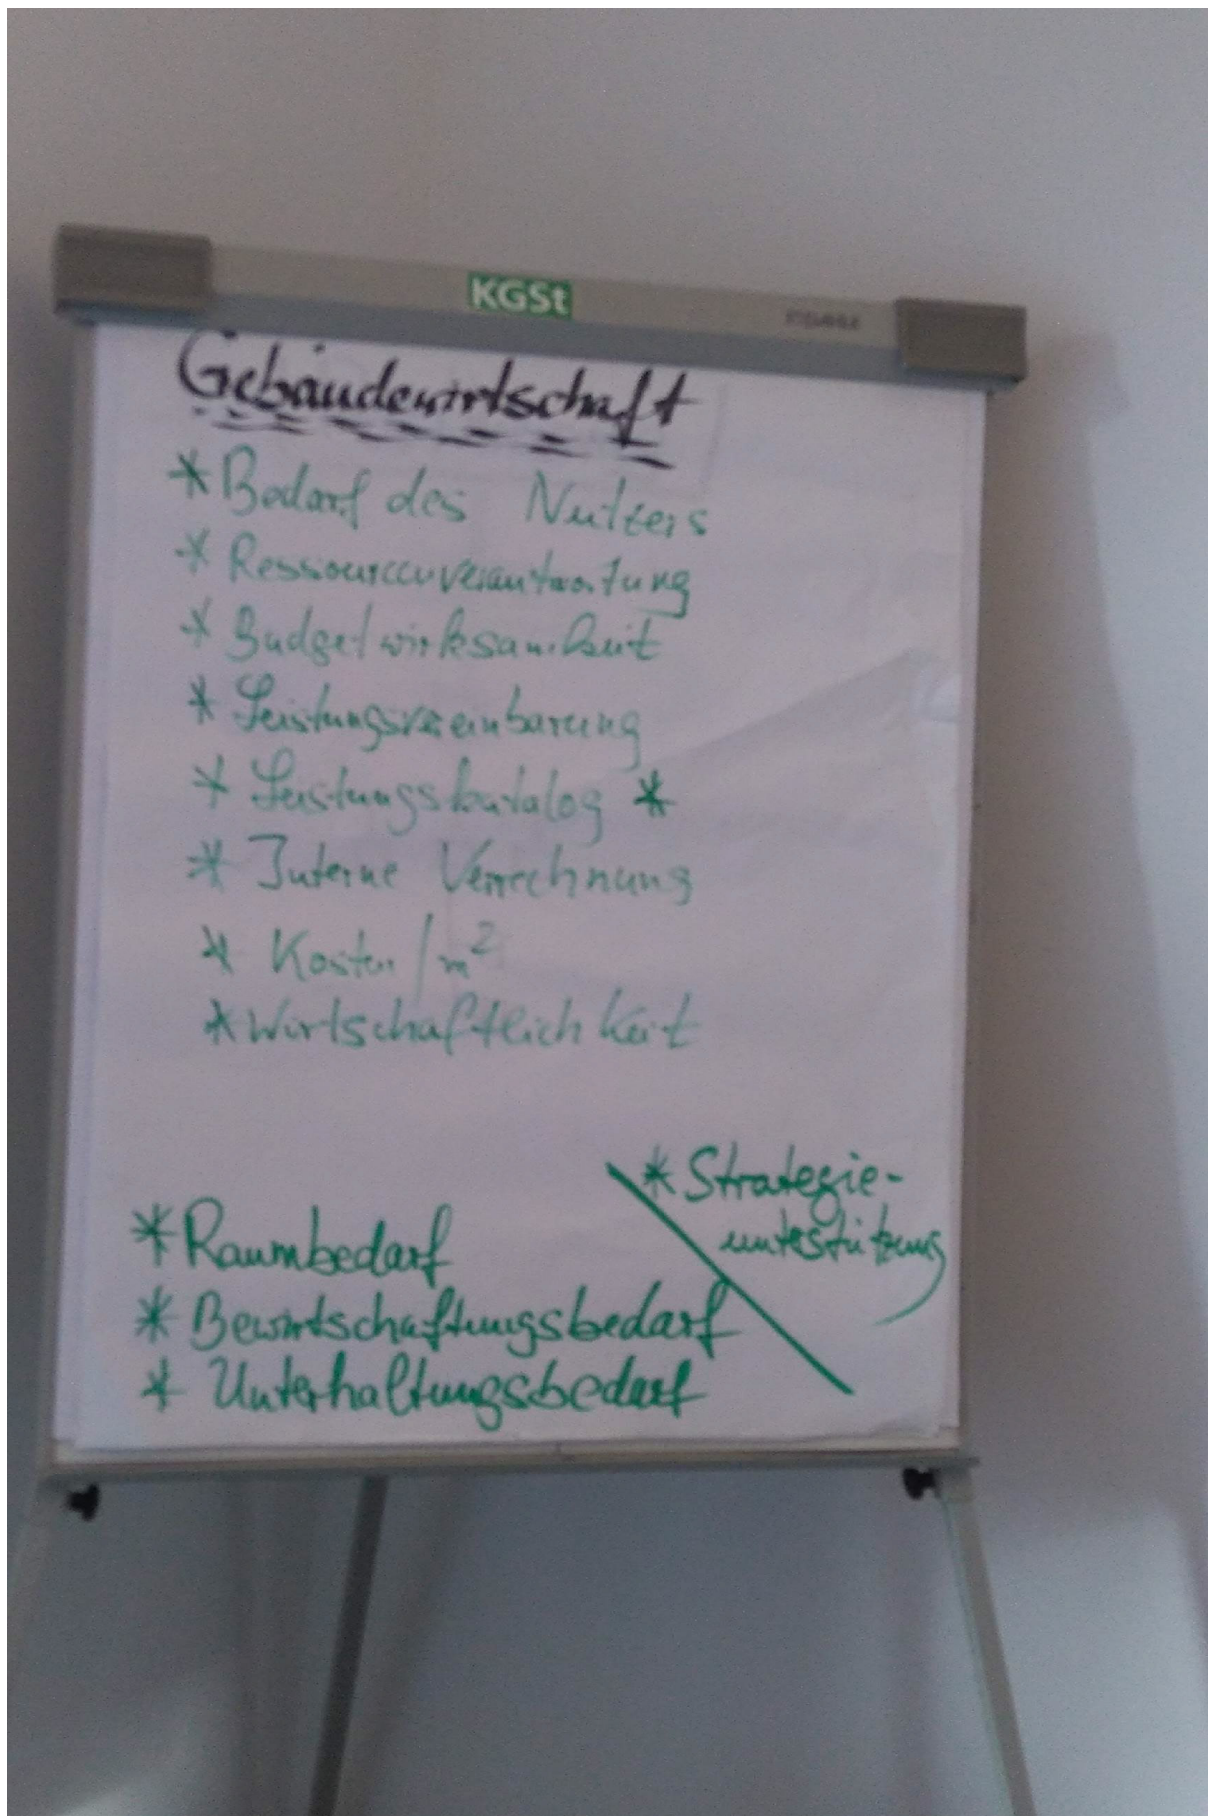 KGSt
Gebäudewirtschaft
* Bedarf des Nutzers
* Ressourcenverantwortung
* Budgetwirksamkeit
* Leistungsvereinbarung
* Leistungskatalog *
* Interne Verrechnung
* Kosten/m²
* Wirtschaftlichkeit
* Strategie-
unterstützung
* Raumbedarf
* Bewirtschaftungsbedarf
* Unterhaltungsbedarf